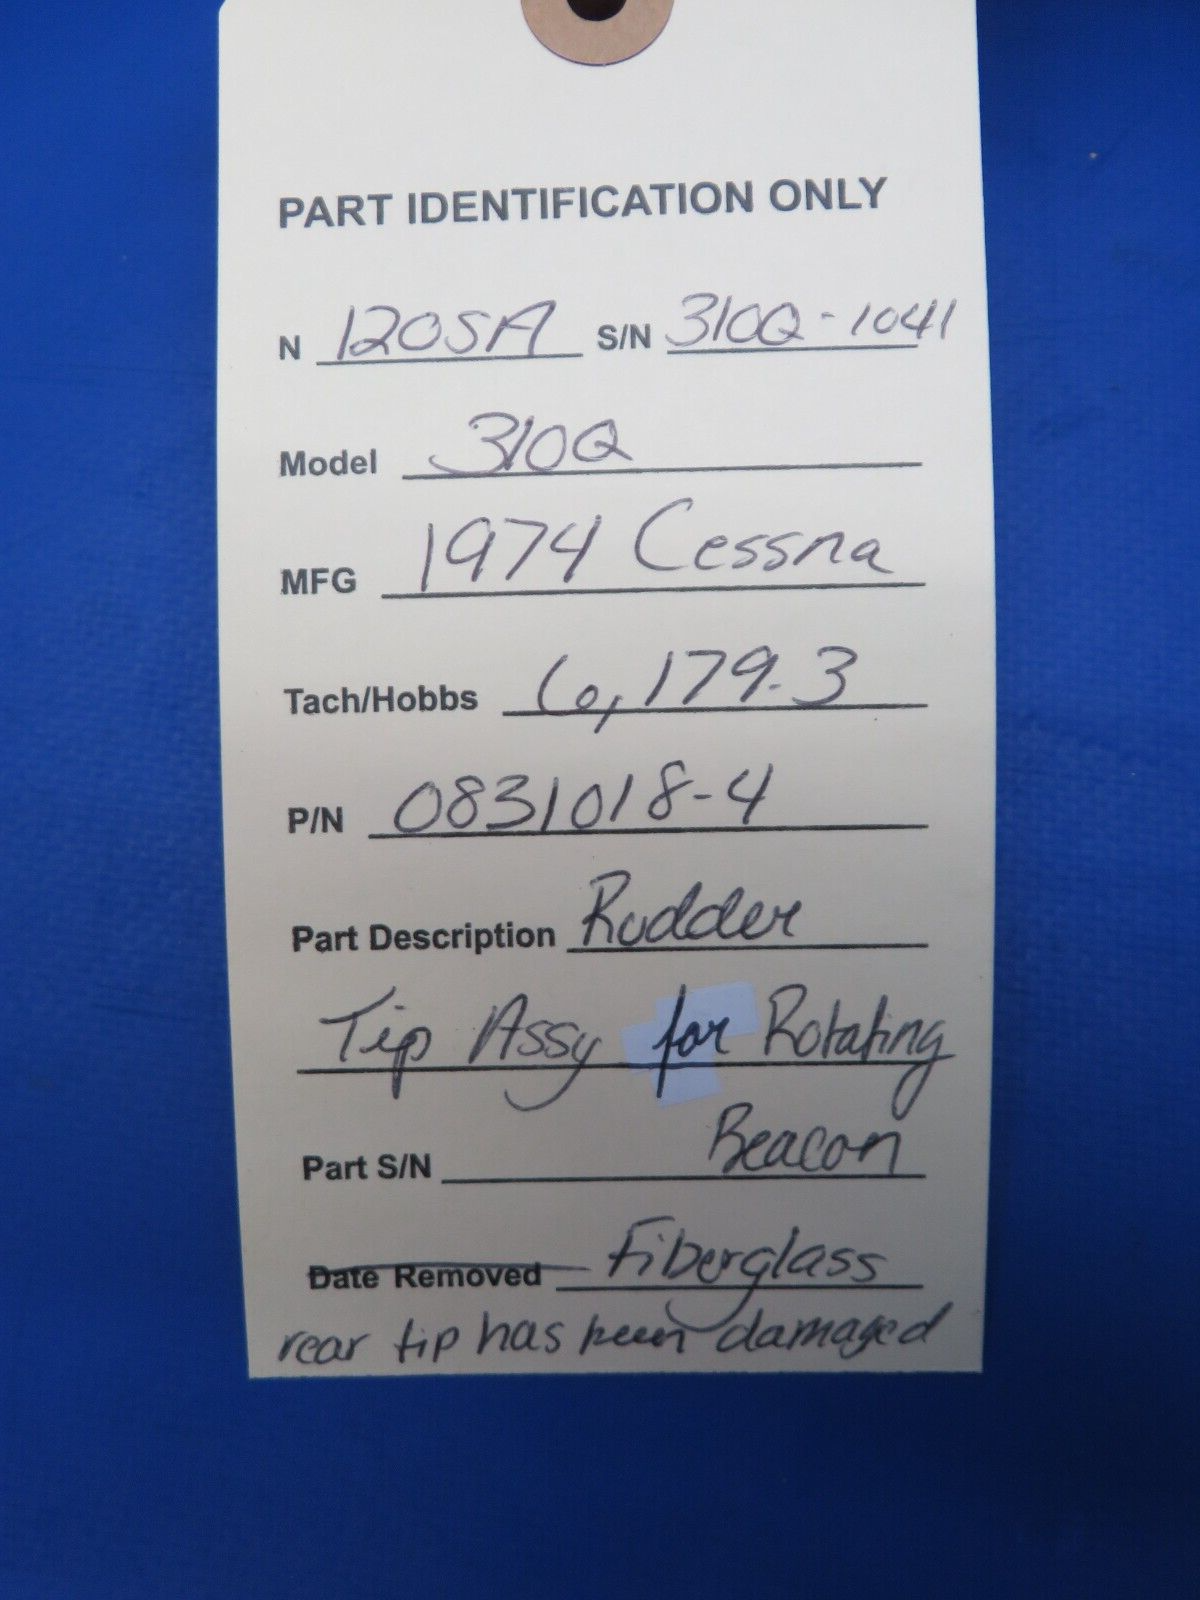 PART IDENTIFICATION ONLY
N 1205A S/N 310Q-1041
Model 310Q
MFG 1974 Cessna
Tach/Hobbs 6,179.3
P/N 0831018-4
Part Description Rudder
Tip Assy for Rotating
Beacon
Part S/N
Date Removed Fiberglass
rear tip has been damaged